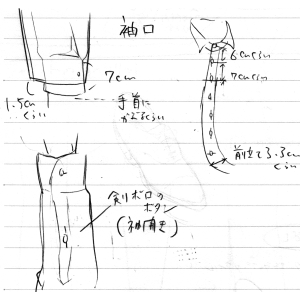 袖口
7cm
1.5cm
くらい
手首に
かぶるくらい
6cmくらい
7cmくらい
前立て3.3cm
くらい
剣ボロの
ボタン
(袖開き)